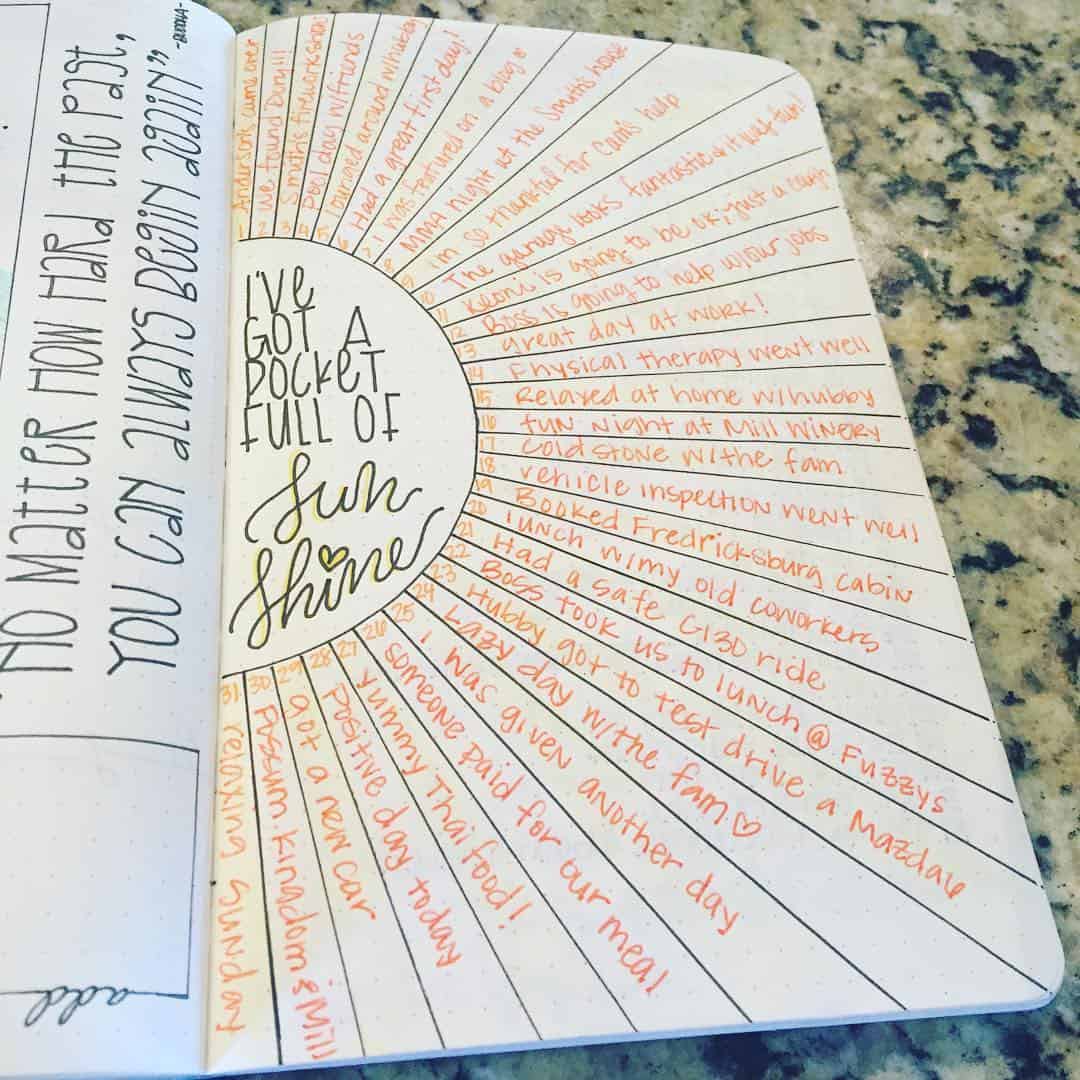 NO MATTER HOW HARD THE PAST,
YOU CAN ALWAYS BEGIN AGAIN"
-BUDDHA-
add
I'VE
GOT A
POCKET
FULL OF
Sun
Shine
1 Andersons came over
2 We found Dory!!!
3 Smith's fireworks show
4 Pool day w/friends
5 lounged around w/hubby
6 Had a great first day!
7 I was featured on a blog
8 MMA night at the Smith's house
9 Im so thankful for Cam's help
10 The garage looks fantastic & it was fun!
11 Keoni is going to be ok; just a cough
12 Boss is going to help w/our jobs
13 Great day at work!
14 Physical therapy went well
15 Relaxed at home w/hubby
16 fun Night at Mill Winery
17 Cold stone w/the fam
18 vehicle inspection went well
19 Booked Fredricksburg cabin
20 lunch w/my old coworkers
21 Had a safe ride
22 Boss took us to lunch @ Fuzzys
23 Hubby got to test drive a Mazda6
24 Lazy day w/the fam ♡
25 I was given another day
26 someone paid for our meal
27 yummy Thai food!
28 positive day today
29 got a new car
30 Possum Kingdom & Mill
31 relaxing sunday